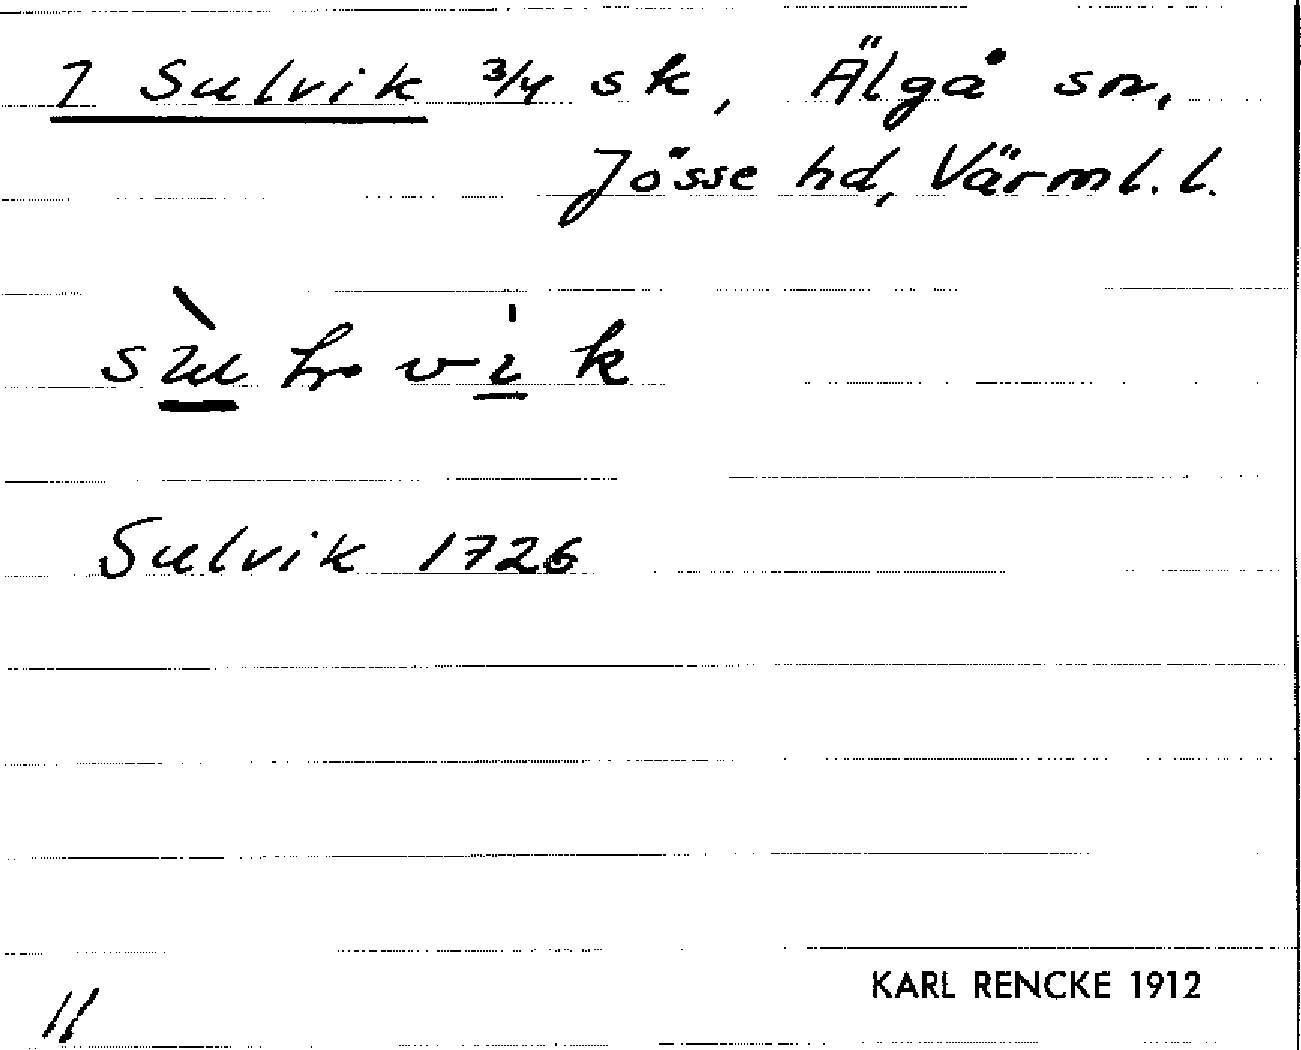 7 Sulvik 3/4 sk, Älgå sn,
Jösse hd, Värml. l.
Sulvik 1726
KARL RENCKE 1912
11